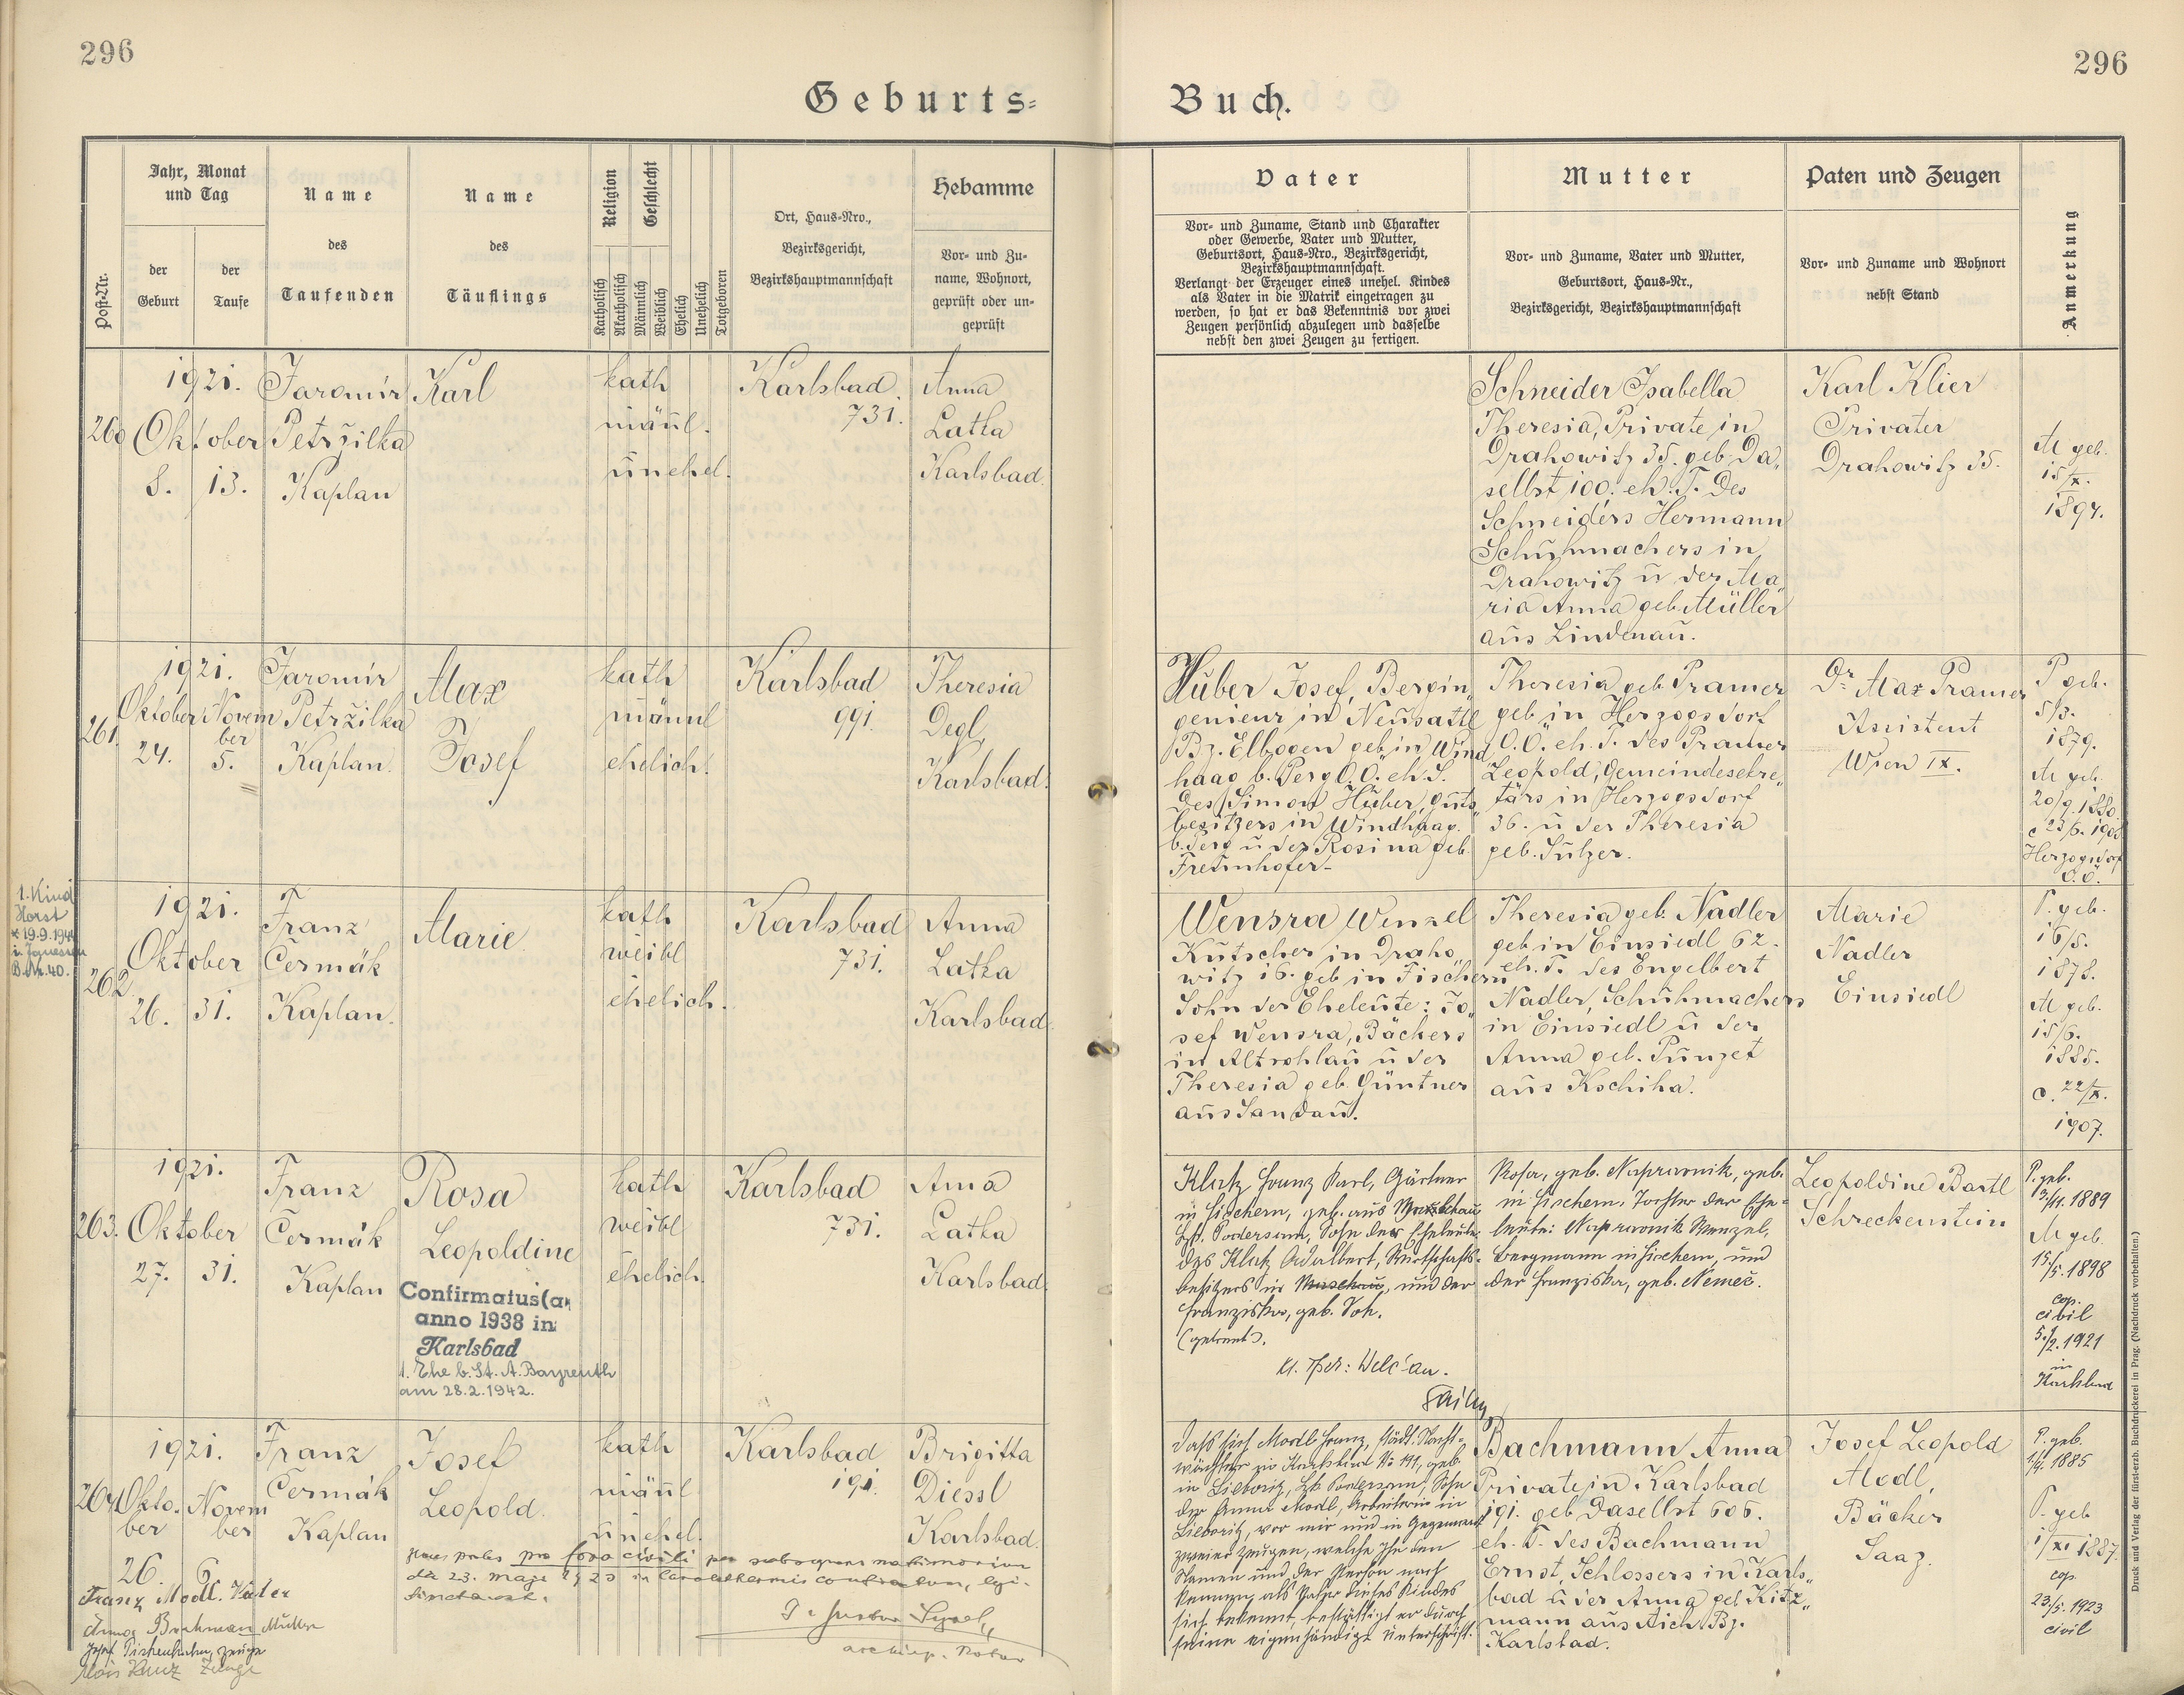 296
296
Geburts-
Buch.
Post-Nr.
Jahr, Monat
und Tag
der
Geburt
der
Taufe
Name
des
Taufenden
Name
des
Täuflings
Religion
Katholisch
Akatholisch
Geschlecht
Männlich
Weiblich
Ehelich
Unehelich
Totgeboren
Ort, Haus-Nro.,
Bezirksgericht,
Bezirkshauptmannschaft
Hebamme
Vor- und Zu-
name, Wohnort,
geprüft oder un-
geprüft
Vater
Vor- und Zuname, Stand und Charakter
oder Gewerbe, Vater und Mutter,
Geburtsort, Haus-Nro., Bezirksgericht,
Bezirkshauptmannschaft.
Verlangt der Erzeuger eines unehel. Kindes
als Vater in die Matrik eingetragen zu
werden, so hat er das Bekenntnis vor zwei
Zeugen persönlich abzulegen und dasselbe
nebst den zwei Zeugen zu fertigen.
Mutter
Vor- und Zuname, Vater und Mutter,
Geburtsort, Haus-Nr.,
Bezirksgericht, Bezirkshauptmannschaft
Paten und Zeugen
Vor- und Zuname und Wohnort
nebst Stand
Anmerkung
260
1921.
Oktober
8. 13.
Jaromír
Petržilka
Kaplan
Karl
kath
männl.
unehel.
Karlsbad
731.
Anna
Latka
Karlsbad.
Schneider Isabella
Theresia, Private in
Drahowitz 35. geb. Da„
selbst 100. eh. T. des
Schneiders Hermann
Schuhmachers in
Drahowitz u der Ma
ria Anna geb Müller
aus Lindenau.
Karl Klier
Privater
Drahowitz 35.
M geb.
15/X.
1894.
261.
1921.
Oktober Novem
ber
24. 5.
Jaromír
Petržilka
Kaplan.
Max
Josef
kath
männl
ehelich.
Karlsbad
991.
Theresia
Degl,
Karlsbad.
Huber Josef, Bergin„
genieur in Neusattl
Bz. Elbogen geb in Wind
haag b. Perg O.Ö. eh. S.
des Simon Huber, Guts
besitzers in Windhaag.
b. Perg u der Rosina geb.
Theresia geb Pramer
geb in Herzogsdorf
O.Ö. eh. T. des Pramer
Leopold, Gemeindesekre„
tärs in Herzogsdorf
36. u der Theresia
geb. Sulzer.
Dr Max Pramer
Assistent
Wien IX.
P geb.
5/3.
1879.
M geb.
20/9. 1880.
Herzogsdorf
O.Ö.
1. Kind
Horst
* 19.9.1944
B.Nr. 40.
262
1921.
Oktober
26. 31.
Franz
Čermák
Kaplan.
Marie
kath
weibl
ehelich.
Karlsbad
731.
Anna
Latka
Karlsbad.
Wensra Wenzel
Kutscher in Draho„
witz 16. geb in Fischern
Sohn der Eheleute: Jo„
sef Wensra, Bäckers
in Altrohlau u der
Theresia geb. Güntner
aus Sandau.
Theresia geb. Nadler
geb in Einsiedl 62.
eh. T. des Engelbert
Nadler, Schuhmachers
in Einsiedl u der
Anna geb. Punzet
aus Kschiha.
Marie
Nadler
Einsiedl
P. geb.
16/5.
1878.
M geb.
15/6.
1885.
c. 22/X.
1907.
263.
1921.
Oktober
27. 31.
Franz
Čermák
Kaplan
Rosa
Leopoldine
Confirmatus(a)
anno 1938 in
Karlsbad
1. Ehe b. St. A. Bayreuth
am 28.2.1942.
kath
weibl
ehelich.
Karlsbad
731.
Anna
Latka
Karlsbad.
Klutz Franz Karl, Gärtner
in Fischern, geb. aus
Bz. Podersam, Sohn der Eheleute
des Klutz Adalbert, Wirtschafts-
besitzers in, und der
Franziska, geb.
(getrennt).
Rosa, geb. Napravnik, geb.
in Fischern, Tochter der Ehe-
leute: Napravnik Wenzel,
Bergmann in Fischern, und
der Franziska, geb. Nemec.
Leopoldine Bartl
Schreckenstein
P. geb.
13/11. 1889
M geb.
15./5. 1898
cop.
civil
5./2. 1921
in
Karlsbad
264
1921.
Okto.
ber
Novem
ber
26. 6.
Franz
Čermák
Kaplan
Josef
Leopold.
kath
männl
unehel.
Karlsbad
191.
Brigitta
Diessl
Karlsbad.
Franz Modl. Vater
Anna Bachman Mutter
Josef, Zeuge
Alois Zeuge
pro foro civili per subsequens matrimonium
Daß sich Modl Franz, städt. Nacht-
wächter in Karlsbad No 191, geb.
in Liebotitz, Bz. Podersam, Sohn
der Anna Modl, Arbeiterin in
Liebotitz, vor mir und in Gegenwart
zweier Zeugen, welche ihn dem
Namen und der Person nach
kennen, als Vater dieses Kindes
sich bekennt, bestätigt er durch
seine eigenhändige Unterschrift.
Bachmann Anna
Private in Karlsbad
191. geb Daselbst 606.
eh. T. des Bachmann
Ernst, Schlossers in Karls„
bad u der Anna geb Kitz„
mann aus Aich Bz.
Karlsbad.
Josef Leopold
Modl,
Bäcker
Saaz.
P. geb.
1/4. 1885
P. geb
1/XI 1887.
cop.
23./5. 1923
civil
Druck und Verlag der fürst-erzb. Buchdruckerei in Prag. (Nachdruck vorbehalten.)